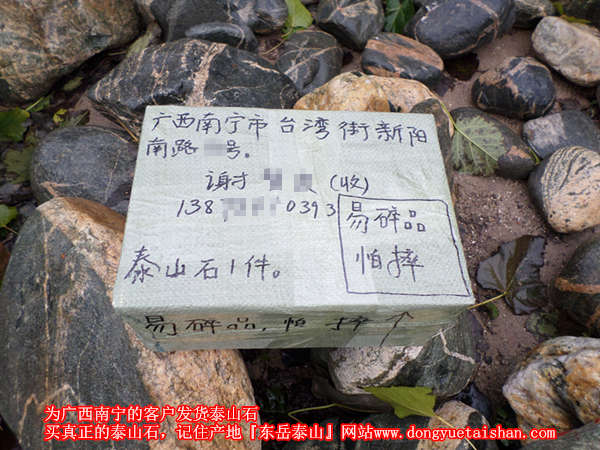 广西南宁市台湾街新阳
南路 号。
谢 (收)
138 0393
易碎品
怕摔
泰山石1件。
易碎品,怕摔↑
为广西南宁的客户发货泰山石
买真正的泰山石，记住产地『东岳泰山』网站www.dongyuetaishan.com